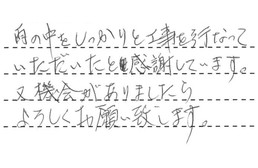 雨の中をしっかりと工事を行なって
いただいたと感謝しています。
又機会がありましたら
よろしくお願い致します。